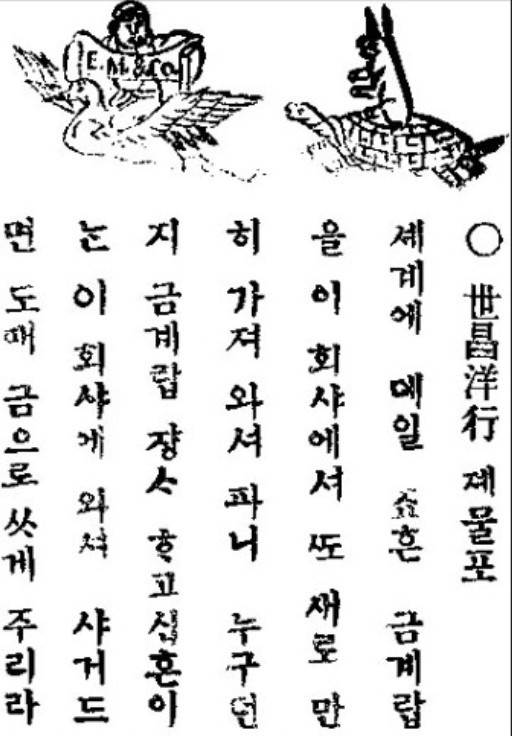 E. M. & Co.
○ 世昌洋行 제물포
세계에 뎨일 죠흔 금계랍
을 이 회샤에셔 ᄯᅩ 새로 만
히 가져 와셔 파니 누구던
지 금계랍 쟝ᄉᆞ ᄒᆞ고 십흔이
ᄂᆞᆫ 이 회샤에 와셔 사거드
면 도매 금으로 싸게 주리라